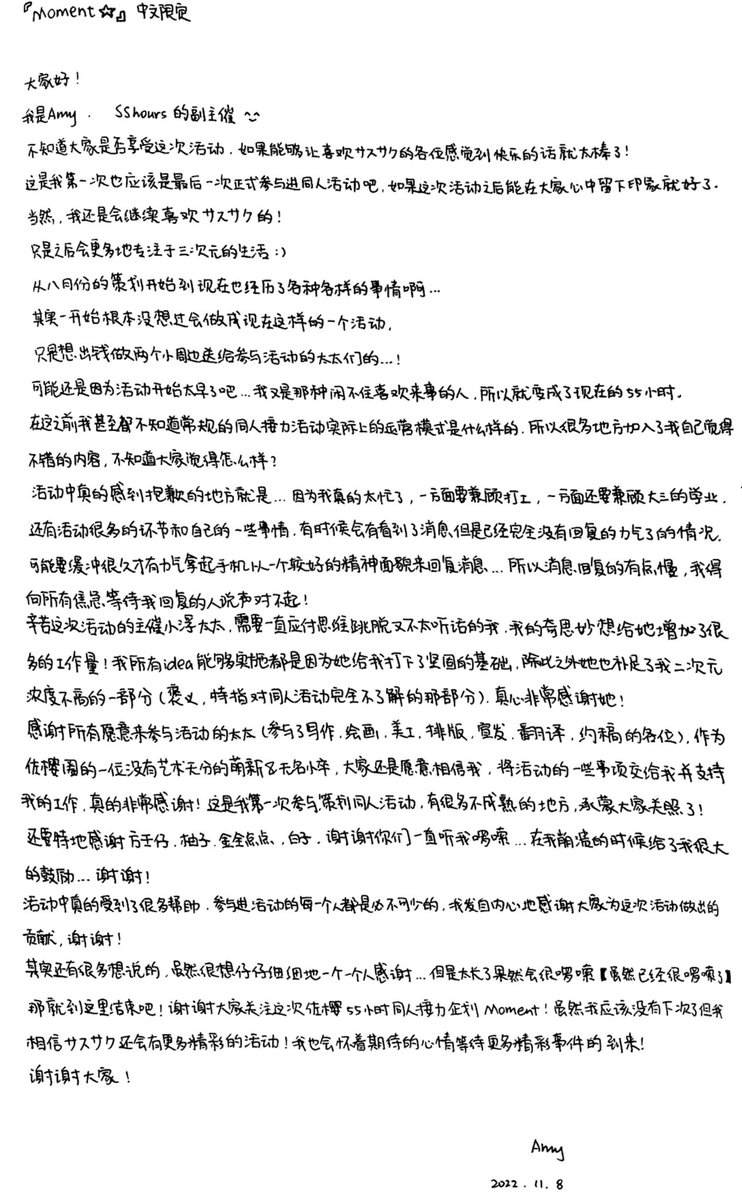 『Moment☆』中文限定
大家好！
我是Amy. SShours的副主催～
不知道大家是否享受这次活动.如果能够让喜欢サスサク的各位感觉到快乐的话就太棒了！
这是我第一次也应该是最后一次正式参与进同人活动吧,如果这次活动之后能在大家心中留下印象就好了.
当然,我还是会继续喜欢サスサク的！
只是之后会更多地专注于三次元的生活:)
从八月份的策划开始到现在也经历了各种各样的事情啊...
其实一开始根本没想过会做成现在这样的一个活动,
只是想出钱做两个小周边送给参与活动的太太们的...！
可能还是因为活动开始太早了吧...我又是那种闲不住喜欢来事的人.所以就变成了现在的55小时.
在这之前我甚至都不知道常规的同人接力活动实际上的运营模式是什么样的.所以很多地方加入了我自己觉得
不错的内容,不知道大家觉得怎么样？
活动中真的感到抱歉的地方就是...因为我真的太忙了,一方面要兼顾打工,一方面还要兼顾大三的学业.
还有活动很多的环节和自己的一些事情,有时候会有看到了消息但是已经完全没有回复的力气了的情况.
可能要缓冲很久才有力气拿起手机以一个较好的精神面貌来回复消息...所以消息回复的有点慢,我得
向所有焦急等待我回复的人说声对不起！
辛苦这次活动的主催小浮太太,需要一直应付思维跳脱又不太听话的我.我的奇思妙想给她增加了很
多的工作量！我所有idea能够实施都是因为她给我打下了坚固的基础,除此之外她也补足了我二次元
浓度不高的一部分(褒义,特指对同人活动完全不了解的那部分).真心非常感谢她！
感谢所有愿意来参与活动的太太(参与了写作.绘画.美工.排版.宣发.翻译.约稿的各位),作为
佐樱圈的一位没有艺术天分的萌新&无名小卒,大家还是愿意相信我,将活动的一些事项交给我并支持
我的工作.真的非常感谢！这是我第一次参与策划同人活动,有很多不成熟的地方,承蒙大家关照了！
还要特地感谢方壬仔.柚子.金金点点、白子,谢谢你们一直听我啰嗦...在我崩溃的时候给了我很大
的鼓励...谢谢！
活动中真的受到了很多帮助.参与进活动的每一个人都是必不可少的,我发自内心地感谢大家为这次活动做出的
贡献,谢谢！
其实还有很多想说的,虽然很想仔仔细细地一个一个人感谢...但是太长了果然会很啰嗦【虽然已经很啰嗦了】
那就到这里结束吧！谢谢大家关注这次佐樱55小时同人接力企划Moment！虽然我应该没有下次了但我
相信サスサク还会有更多精彩的活动！我也会怀着期待的心情等待更多精彩事件的到来！
谢谢大家！
Amy
2022.11.8